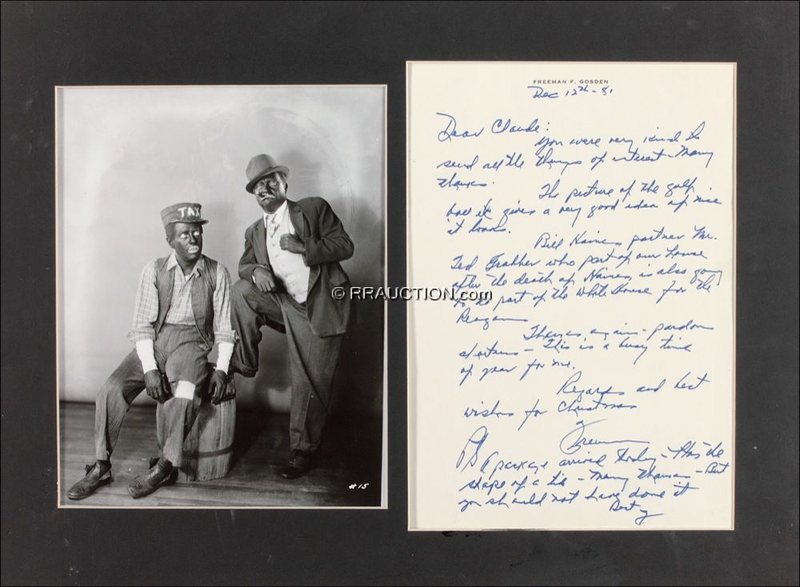 TAXI
© RRAUCTION.com
# 15
FREEMAN F. GOSDEN
Dec 12th - 81
Dear Claude:
You were very kind to
send all the things of interest - Many
thanks.
The picture of the golf
how it gives a very good idea of
it looks.
Bill Haines partner Mr.
Ted who part of our house
after the death of Haines, is also going
to do part of the White House for the
Reagans
Thanks again - pardon
shortness - This is a busy time
of year for me.
Regards and best
wishes for Christmas
Freeman
PS A package arrived today - Has the
shape of a tie - Many thanks - But
you should not have done it